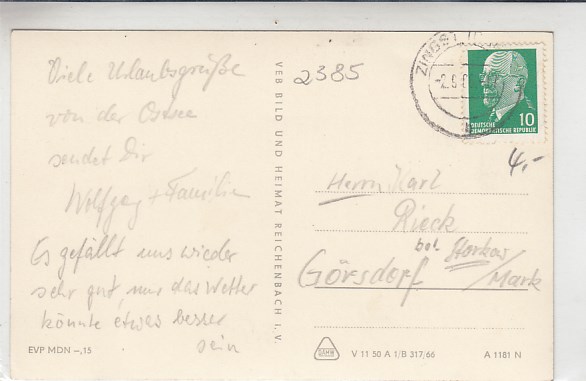 Viele Urlaubsgrüße
von der Ostsee
sendet Dir
Wolfgang + Familie
Es gefällt uns wieder
sehr gut, nur das Wetter
könnte etwas besser
sein
EVP MDN –,15
VEB BILD UND HEIMAT REICHENBACH i. V.
2385
ZINGST
10
DEUTSCHE
DEMOKRATISCHE REPUBLIK
4,-
Herrn Karl
Rieck
bei Storkow
Görsdorf /Mark
V 11 50 A 1/B 317/66
A 1181 N